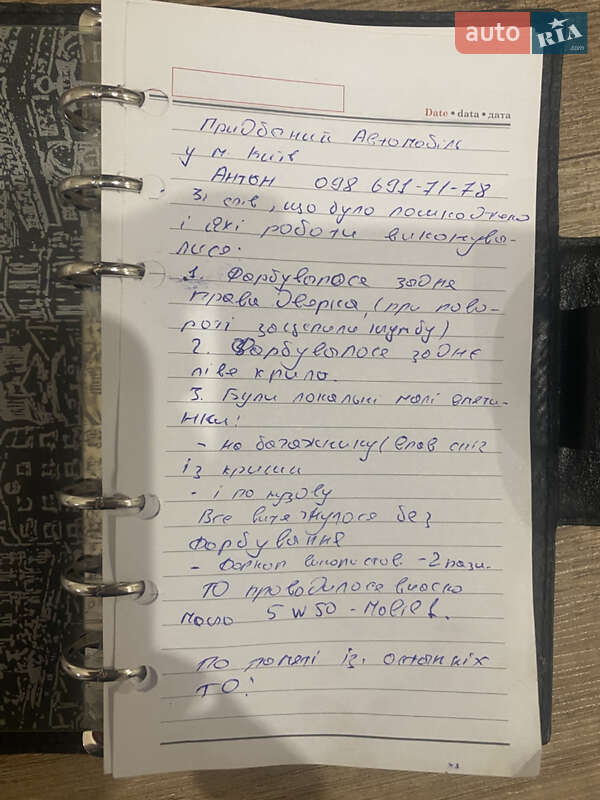 auto RIA .com
Date • data • дата
Придбаний Автомобіль
у м. Київ
Антон 098 691-71-78
Зі слів, що було пошкоджено
і які роботи виконува-
лися:
1. Фарбувалося задне
права дверка, (при пово-
роті зацепили клумбу)
2. Фарбувалося заднє
ліве крило.
3. Були локальні малі вмяти-
нки:
- на багажнику (впав сніг
із криши
- і по кузову
Все витягнулося без
фарбування
- Фаркоп використов. -2 рази.
ТО проводилося вчасно
масло 5W50 - Mobil 1.
по із останніх
ТО!